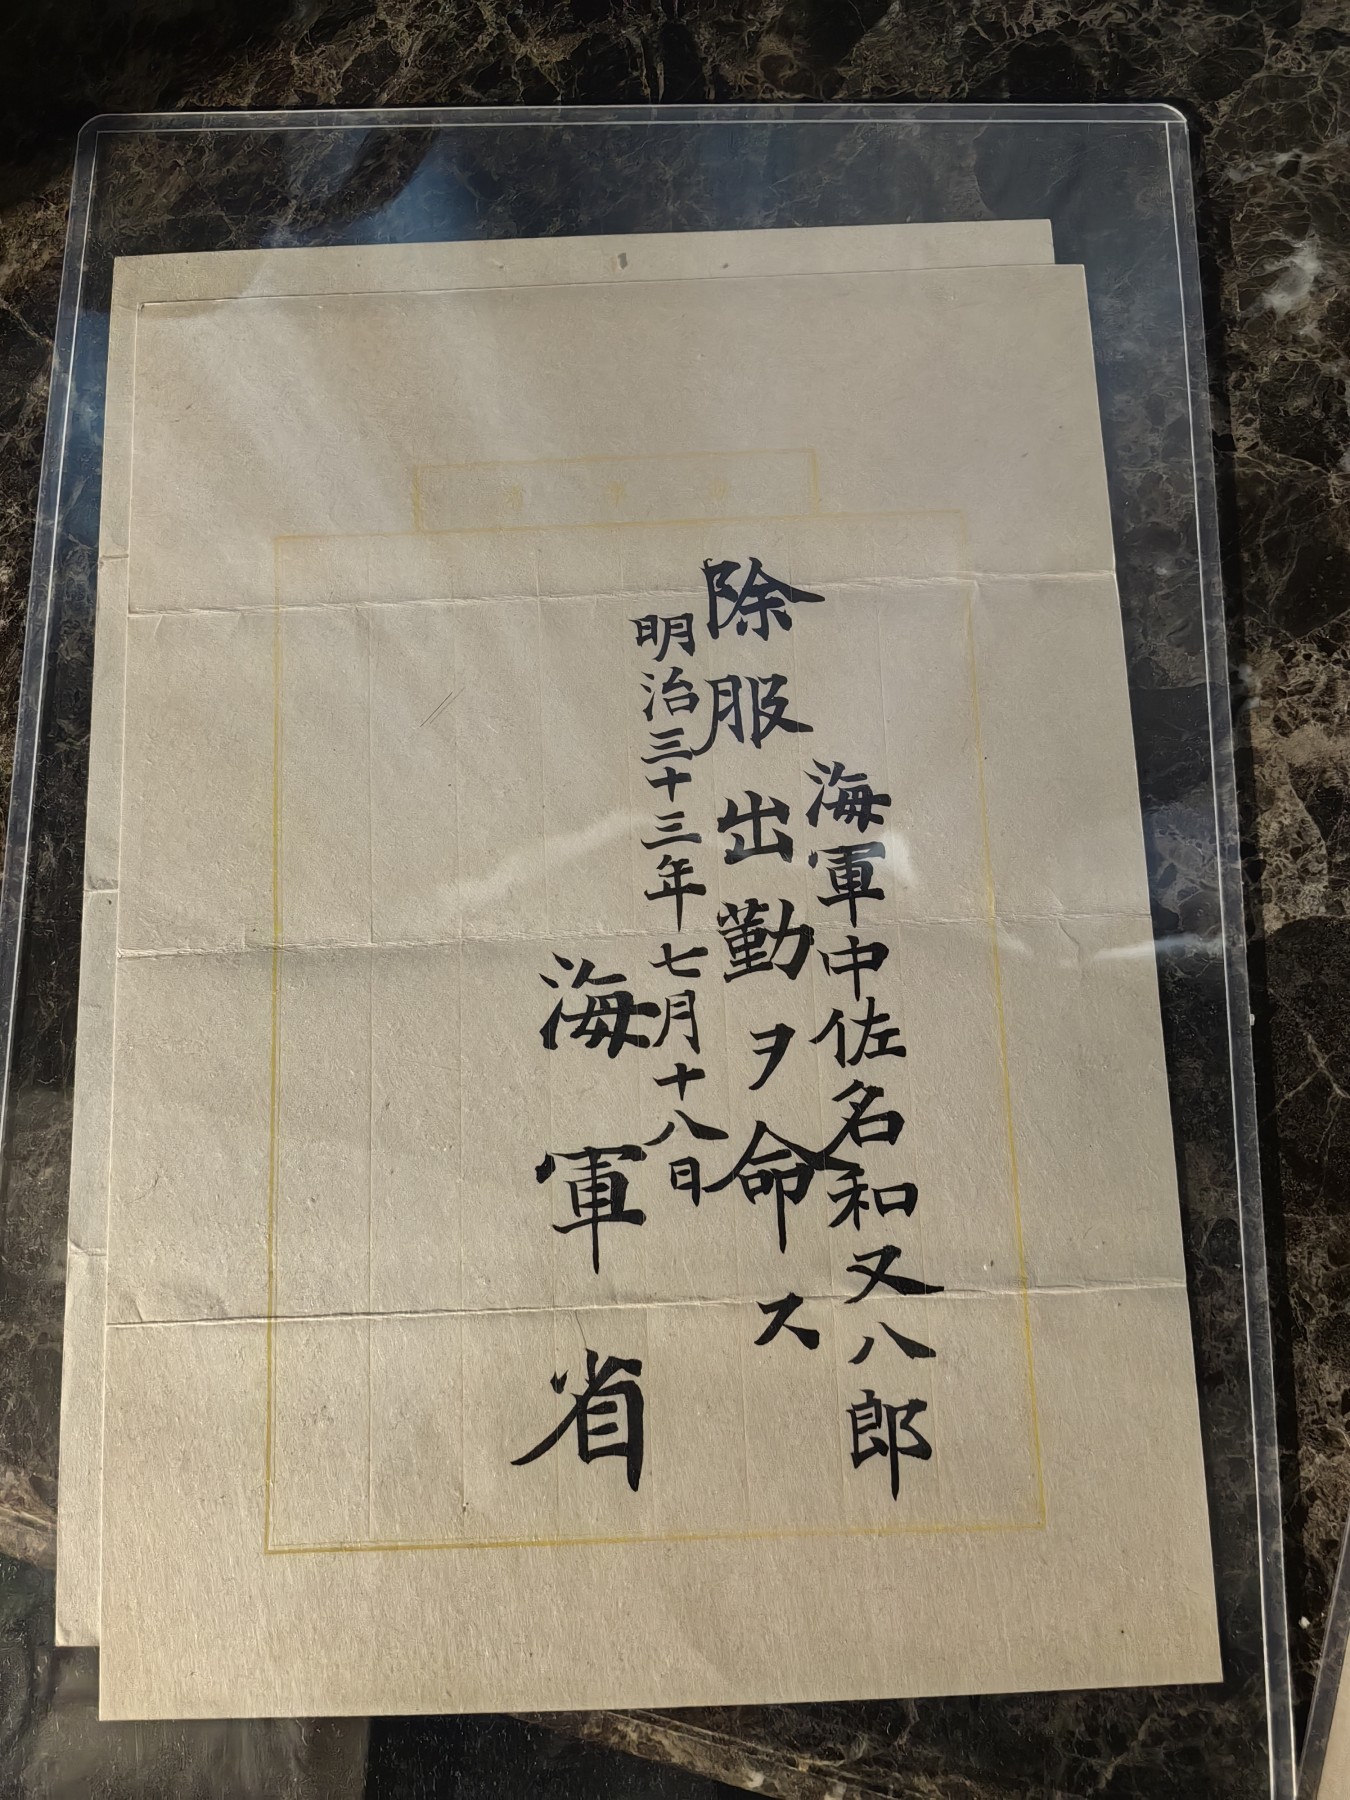 海軍中佐名和又八郎
除服出勤ヲ命ス
明治三十三年七月十八日
海軍省